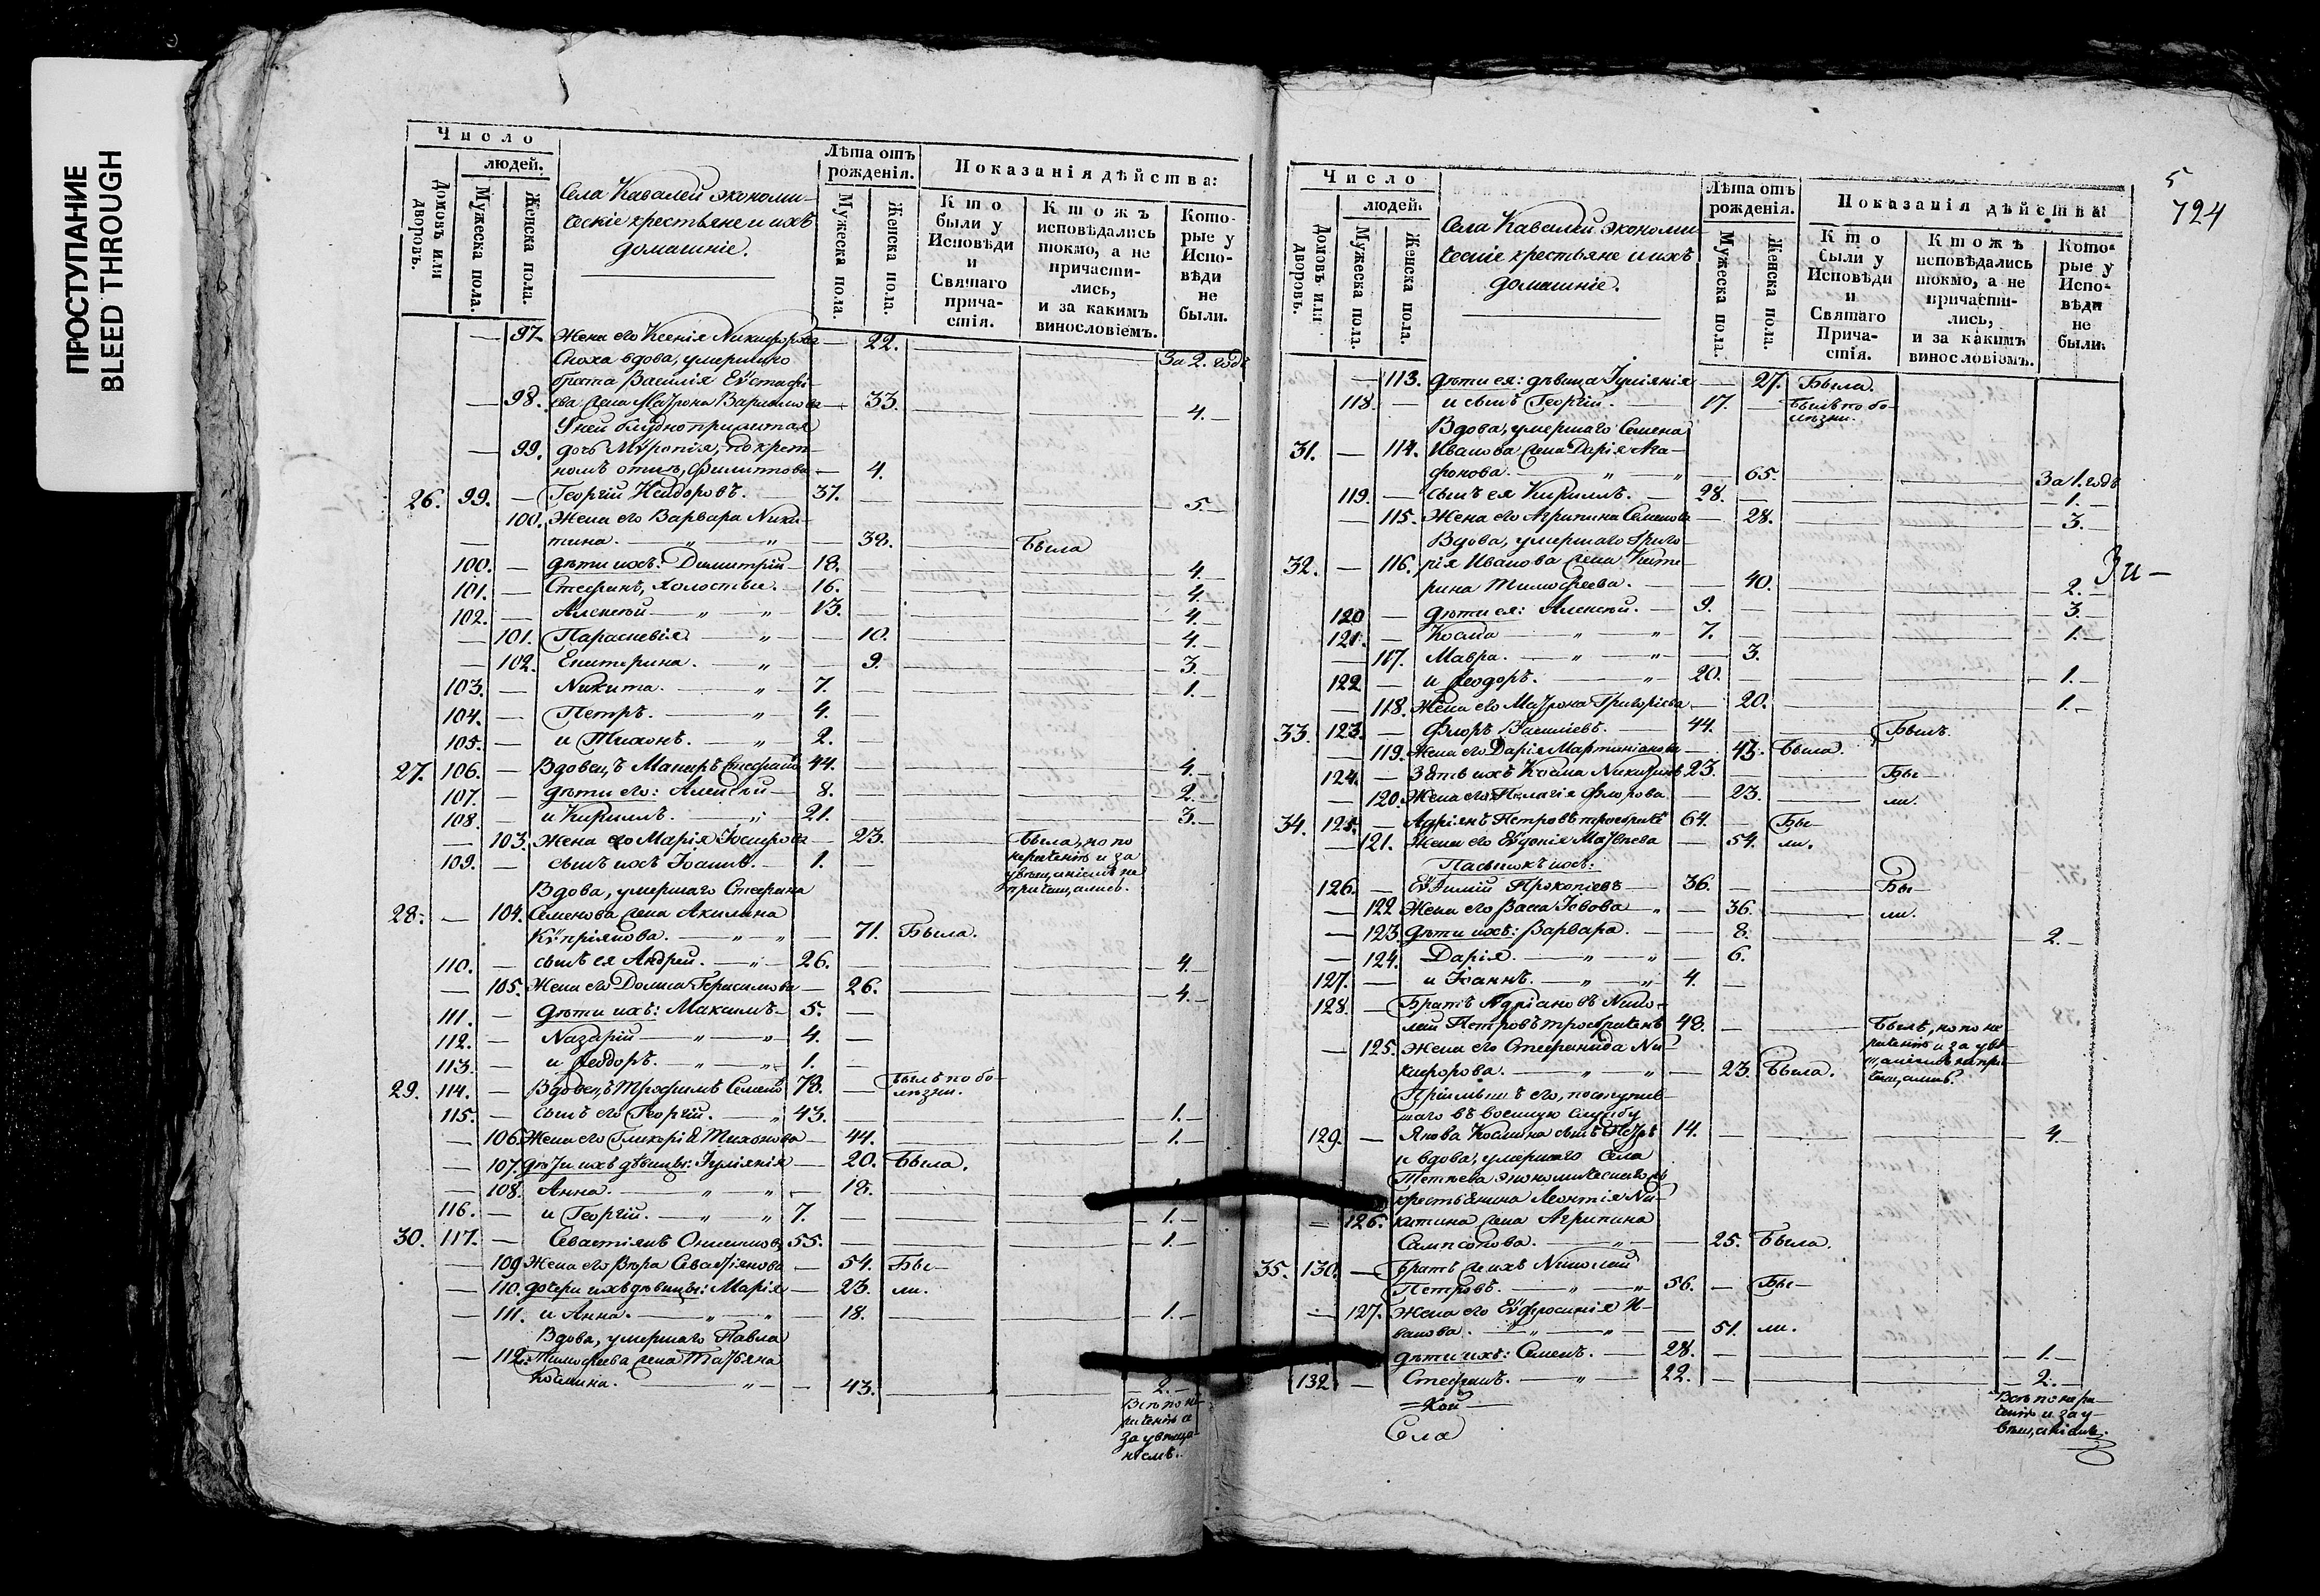 ПРОСТУПАНИЕ
BLEED THROUGH
Число
людей.
Домовъ или дворовъ.
Мужеска пола.
Женска пола.
Села Кавалей экономи-
ческіе крестьяне и ихъ
домашніе.
Лѣта отъ рожденія.
Мужеска пола.
Женска пола.
Показанія дѣйства:
Кто были у Исповѣди и Святаго причастія.
Ктожъ исповѣдались токмо, а не причастились, и за какимъ винословіемъ.
Которые у Исповѣди не были.
— 97. Жена его Ксенія Никифорова — 22. За 2. годъ
Сноха вдова, умершаго
брата Василія Еѵстафі-
— 98. ева жена Матрона Варламова — 33. 4.
У ней блудноприжитая
— 99. дочь Мѵропія, по крест-
номъ отцѣ, Филиппова — 4.
26. 99. — Георгій Исидоровъ. — 37. — 5.
100. Жена его Варвара Ники-
тина. — 38. Была
100. — Дѣти ихъ: Димитрій — 18. 4.
101. — Стефанъ, холостые. — 16. 4.
102. — Алексѣй — 13. 4.
— 101. Параскевія — 10. 4.
— 102. Екатерина. — 9. 3.
103. — Никита. — 7. 1.
104. — Петръ. — 4. —
105. — и Тихонъ. — 2. —
27. 106. — Вдовецъ Макаръ Стефановъ 44. 4.
107. — дѣти его: Алексѣй — 8. 2.
108. — и Кириллъ. — 21. 3.
— 103. Жена его Марія Іосифова — 23. Была, но по
109. — сынъ ихъ Іоаннъ. — 1. — нераченію и за
увѣщаніемъ не
причащались.
Вдова, умершаго Стефана
28. — 104. Семенова жена Акилина
Кѵпріянова. — 71. Была.
110. — сынъ ея Андрей. — 26. 4.
— 105. Жена его Домна Герасимова — 26. 4.
111. — Дѣти ихъ: Максимъ — 5. —
112. — Назарій — 4. —
113. — и Ѳеодоръ. — 1. —
29. 114. — Вдовецъ Трофимъ Семеновъ 78. — Былъ по бо-
лѣзни.
115. — сынъ его Георгій. — 43. 1.
— 106. Жена его Гликерія Тихонова — 44. 1.
— 107. Дѣти ихъ дѣвицы: Іуліянія — 20. Была.
— 108. Анна. — 18.
116. — и Георгій. — 7. — 1.
30. 117. — Севастіянъ Онисимовъ 55. 1.
— 109. Жена его Вѣра Севастіянова — 54. Бы-
— 110. дочери ихъ дѣвицы: Марія — 23. ли.
— 111. и Анна. — 18. 1.
Вдова, умершаго Павла
— 112. Тимофеева жена Татьяна
Космина. — 43. 2.
Всѣ по не-
раченію и
за увѣща-
ніемъ.
5
724
Число
людей.
Домовъ или дворовъ.
Мужеска пола.
Женска пола.
Села Кавалей экономи-
ческіе крестьяне и ихъ
домашніе.
Лѣта отъ рожденія.
Мужеска пола.
Женска пола.
Показанія дѣйства:
Кто были у Исповѣди и Святаго Причастія.
Ктожъ исповѣдались токмо, а не причастились, и за какимъ винословіемъ.
Которые у Исповѣди не были.
— 113. Дѣти ея: дѣвица Іуліянія — 27. Была.
118. — и сынъ Георгій. — 17. — Былъ по бо-
лѣзни.
Вдова, умершаго Семена
31. — 114. Иванова жена Дарія Ага-
фонова. — 65. За 1. годъ
119. — сынъ ея Кириллъ. — 28. — 1.
— 115. Жена его Агрипина Семенова — 28. 3.
Вдова, умершаго Григо-
32. — 116. рія Иванова жена Кате-
рина Тимофеева. — 40. 2.
120 — Дѣти ея: Алексѣй. — 9. — 3.
121. — Косма — 7. — 1.
— 117. Мавра. — 3.
122 — и Ѳеодоръ. — 20. — 1.
— 118. Жена его Матрона Григоріева — 20. 1.
33. 123. — Флоръ Василіевъ. — 44. Былъ.
— 119. Жена его Дарія Мартиніанова — 43. Была.
124. — Зять ихъ Косма Никитинъ 23. Бы-
— 120. Жена его Пелагія Флорова — 23. ли.
34. 125. — Адріянъ Петровъ троебрачъ 64. — Бы-
— 121. Жена его Еѵдокія Матвѣева — 54. ли.
Пасынокъ ихъ:
126. — Еѵѳимій Прокопіевъ — 36. — Бы-
— 122 Жена его Васса Іовова — 36. ли.
— 123. Дѣти ихъ: Варвара. — 8. 2.
— 124. Дарія. — 6.
127. — и Іоаннъ. — 4. —
128. — Братъ Адріановъ Нико-
лай Петровъ троебраченъ 48. — Былъ, но по не
— 125. Жена его Стефанида Ни- раченію и за увѣ-
кифорова. — 23. Была. щаніемъ не при-
чащались.
Пріимышъ его, поступив-
шаго въ военную службу
129. — Якова Космина сынъ Петръ 14. — 4.
и вдова, умершаго Села
Тетѣева экономическаго
крестьянина Леонтія Ни-
— 126. китина жена Агрипина
Сампсонова. — 25. Была.
35. 130. — Братъ же ихъ Николай
Петровъ. — 56. — Бы-
— 127. Жена его Еѵфросинія И-
ванова. — 51. ли.
дѣти ихъ: Семенъ. — 28. — 1.
132 — Стефанъ. — 22. — 2.
Зи-
=кой
Села
Всѣ по нера-
ченію и за у-
вѣщаніемъ.